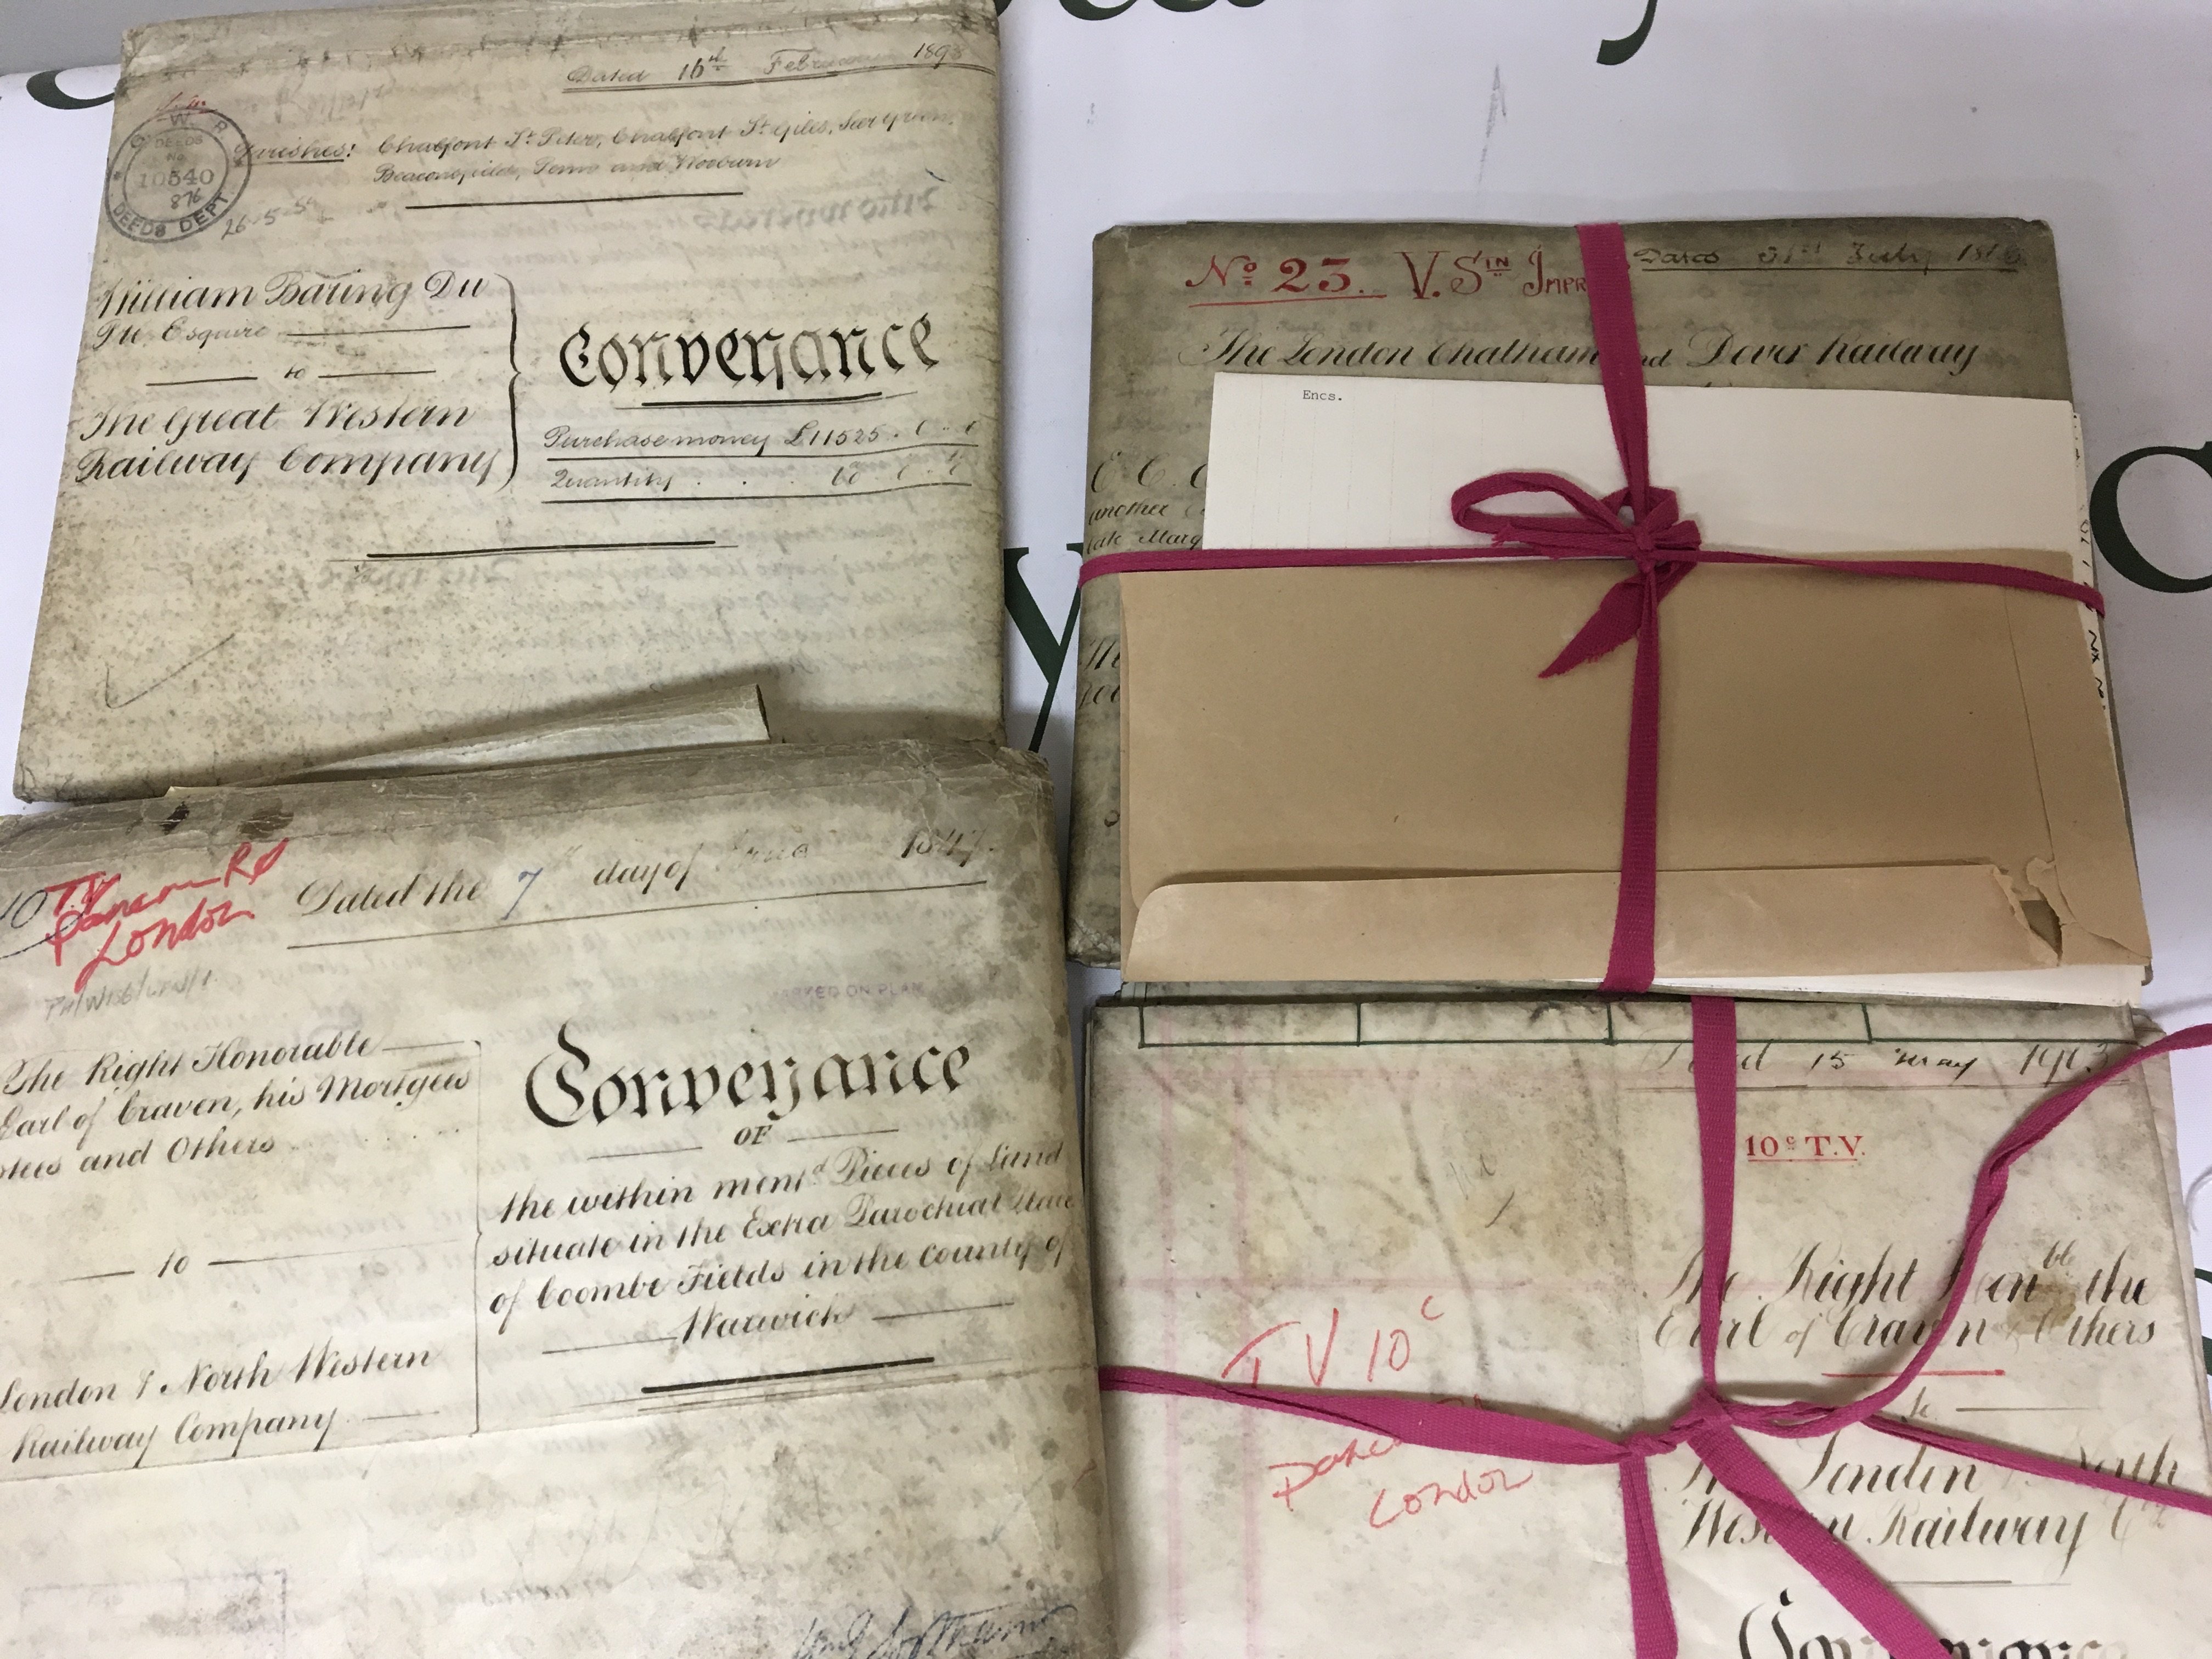 Dated 16th February 1898
G. W. R
DEEDS
No
10540
876
DEEDS DEPT.
26-5-5
Parishes: Chalfont St Peter, Chalfont St Giles, Seer Green,
Beaconsfield, Penn and Wooburn
William Baring Du
Pre Esquire
to
The Great Western
Railway Company
Conveyance
Purchase money £11525. 0. 0
Quantity
No. 23. V. SIN IMPR
Dated 31st July 18
The London Chatham and Dover Railway
Encs.
E. C.
another
late Marq
10
T.V
Pancras Rd
London
Dated the 7th day of June 1847.
MARKED ON PLAN
The Right Honorable
Earl of Craven, his Mortgees
stees and Others
to
London & North Western
Railway Company
Conveyance
OF
the within mentd Pieces of Land
situate in the Extra Parochial Place
of Coombe Fields in the County of
Warwick
15 May 1903
10c T.V.
The Right Honble the
Earl of Craven & Others
to
The London & North
Western Railway Co
T V 10c
Panc
London
Conveyance